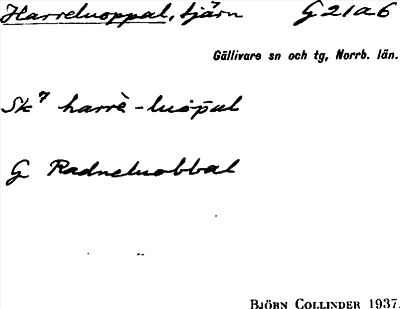 Harreluoppal, tjärn G21a6
Gällivare sn och tg, Norrb. län.
Sk7 harrè-luo̬p̄al
G Radneluobbal
BJÖRN COLLINDER 1937.